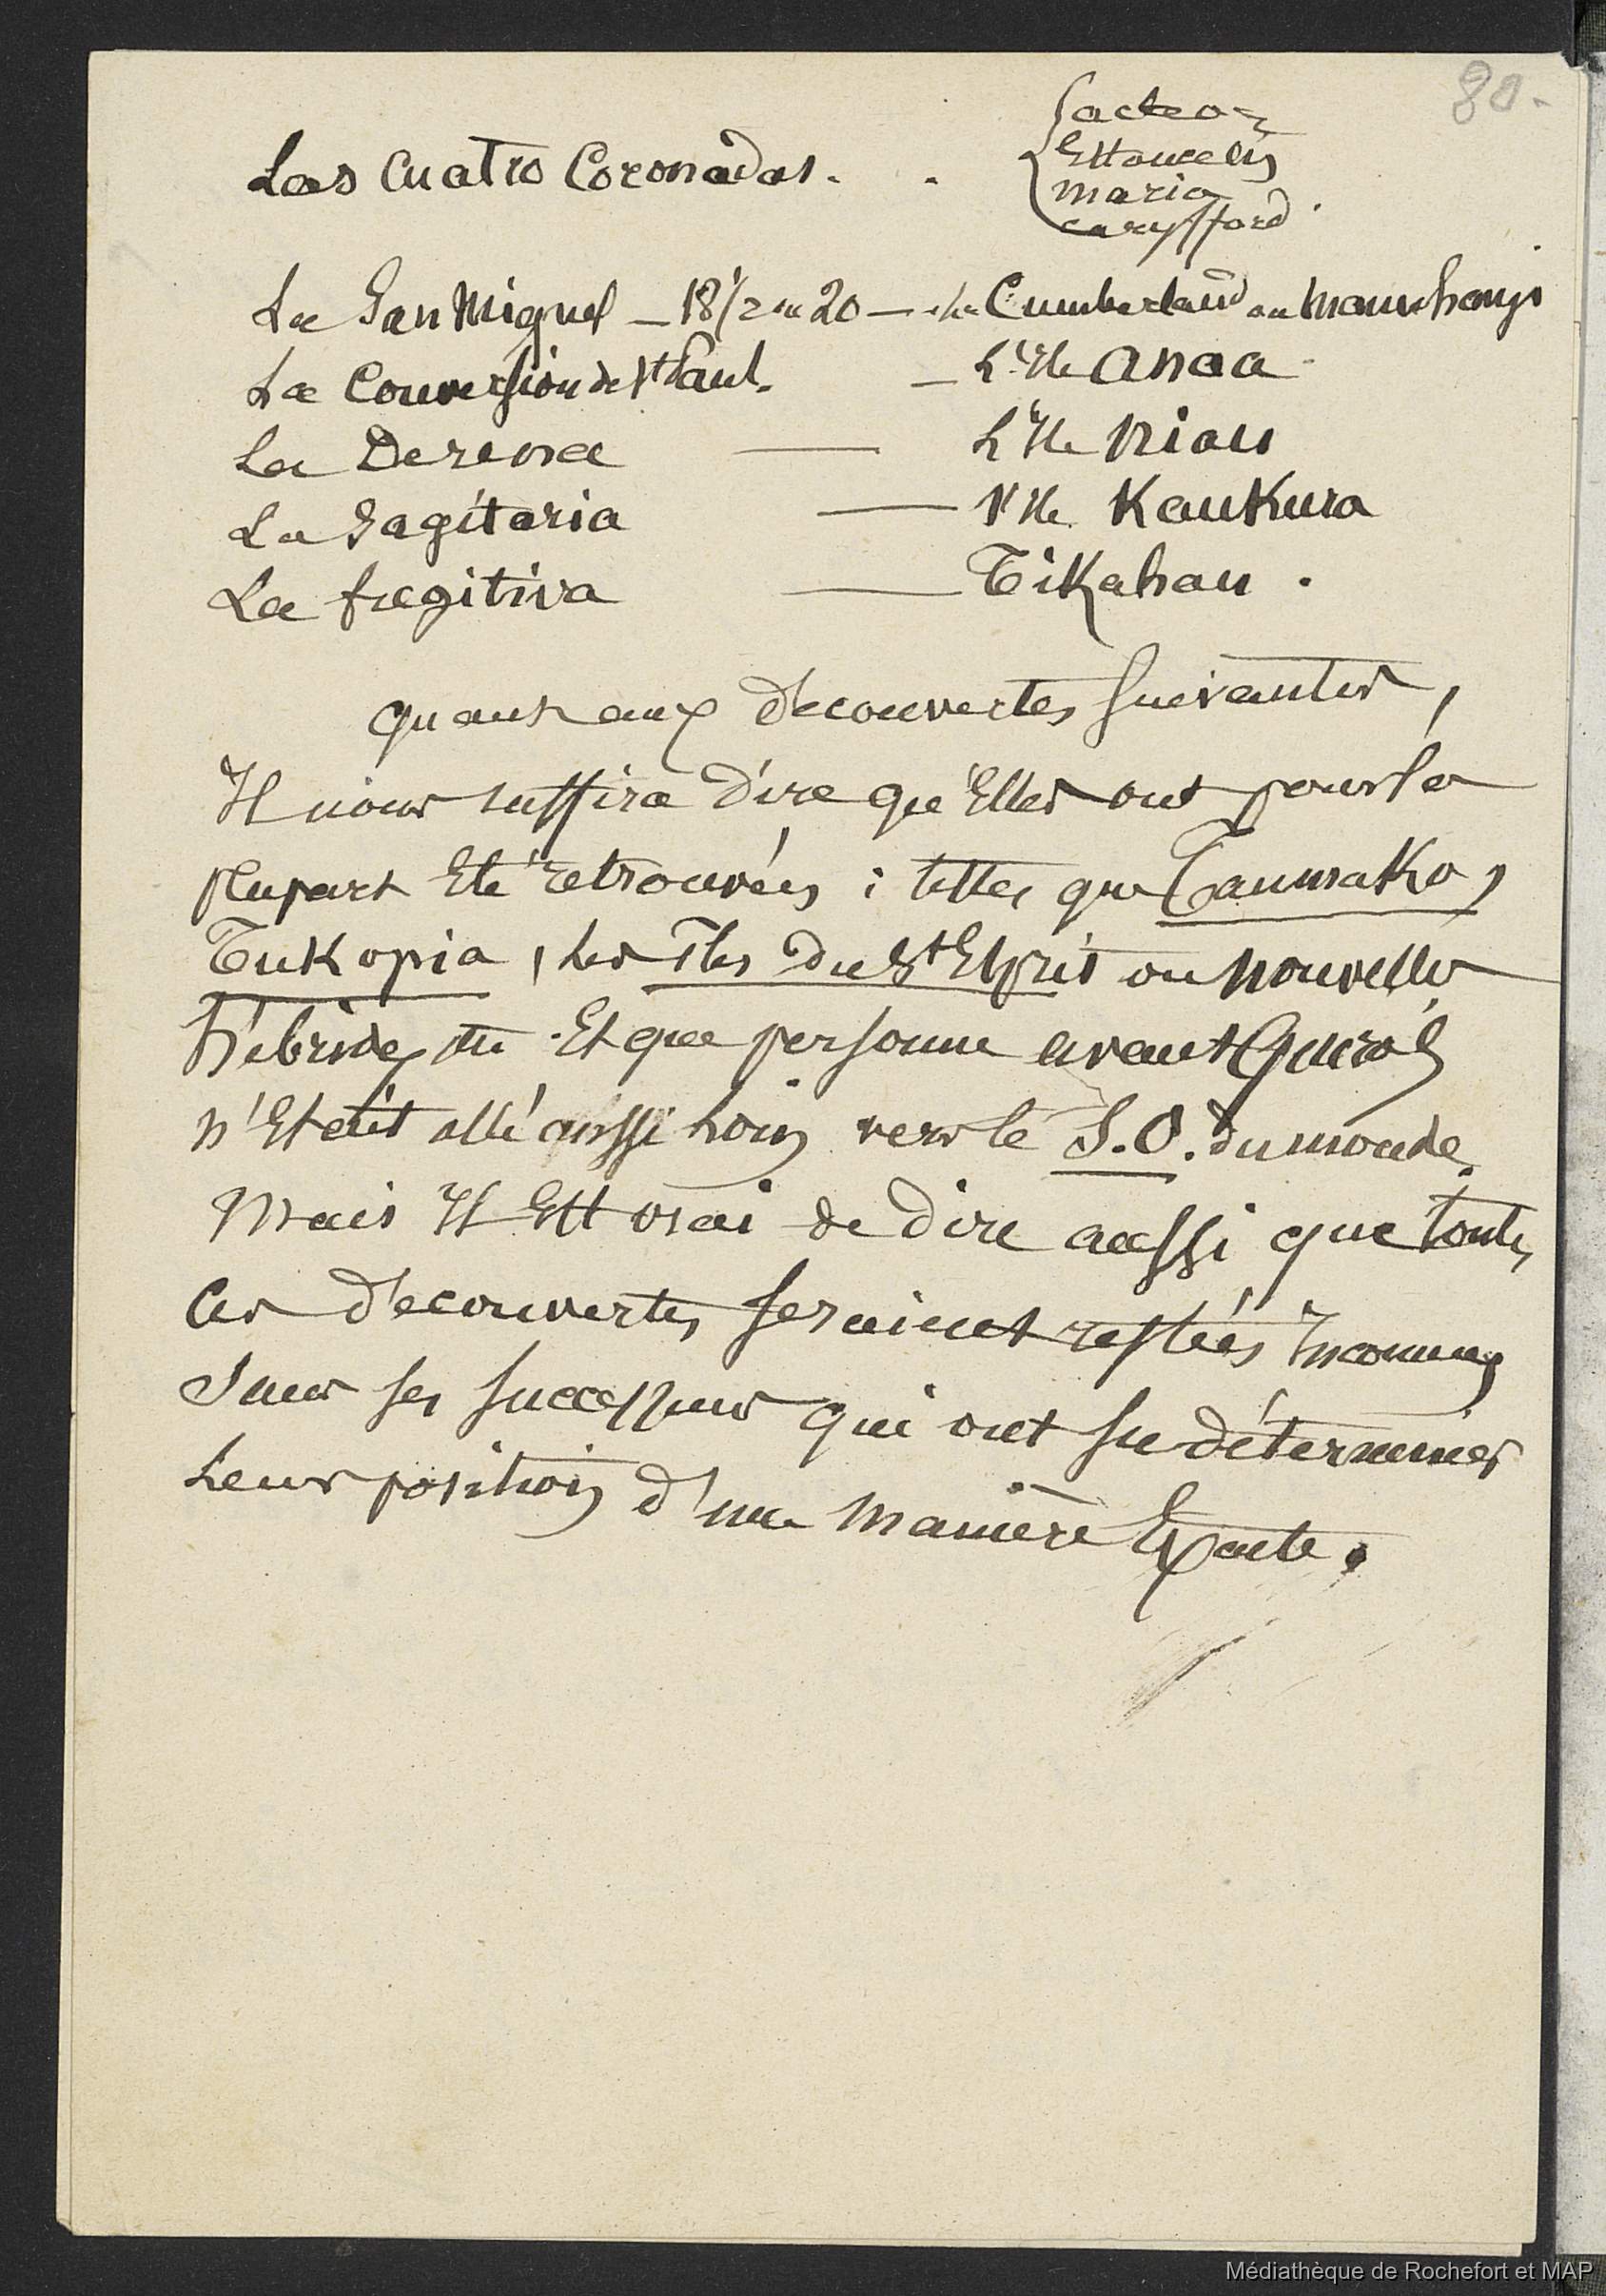 80.
Las Cuatro Coronadas.
acteon
Estancelin
maria
carysfford.
La San Miguel — 18 1/2 ou 20 — Cumberland ou Manuhangi
La Conversion de St Paul. — L'Ile Anaa
La Decena — L'Ile Niau
La Sagitaria — l'Ile Kaukura
La fugitiva — Tikahau.
quant aux découvertes suivantes,
Il nous suffira dire qu'Elles ont pour la
plupart Eté retrouvées ; telles que Taumako,
Tukopia, les Iles du St Esprit ou Nouvelles
Hébrides Et que personne avant Quiros
n'Etait allé aussi loin vers le S.O. du monde.
Mais Il Est vrai de dire aussi que toutes
Ces découvertes seraient restées Inconnues
Sans ses successeurs qui ont su déterminer
Leur position d'une manière Exacte.
Médiathèque de Rochefort et MAP